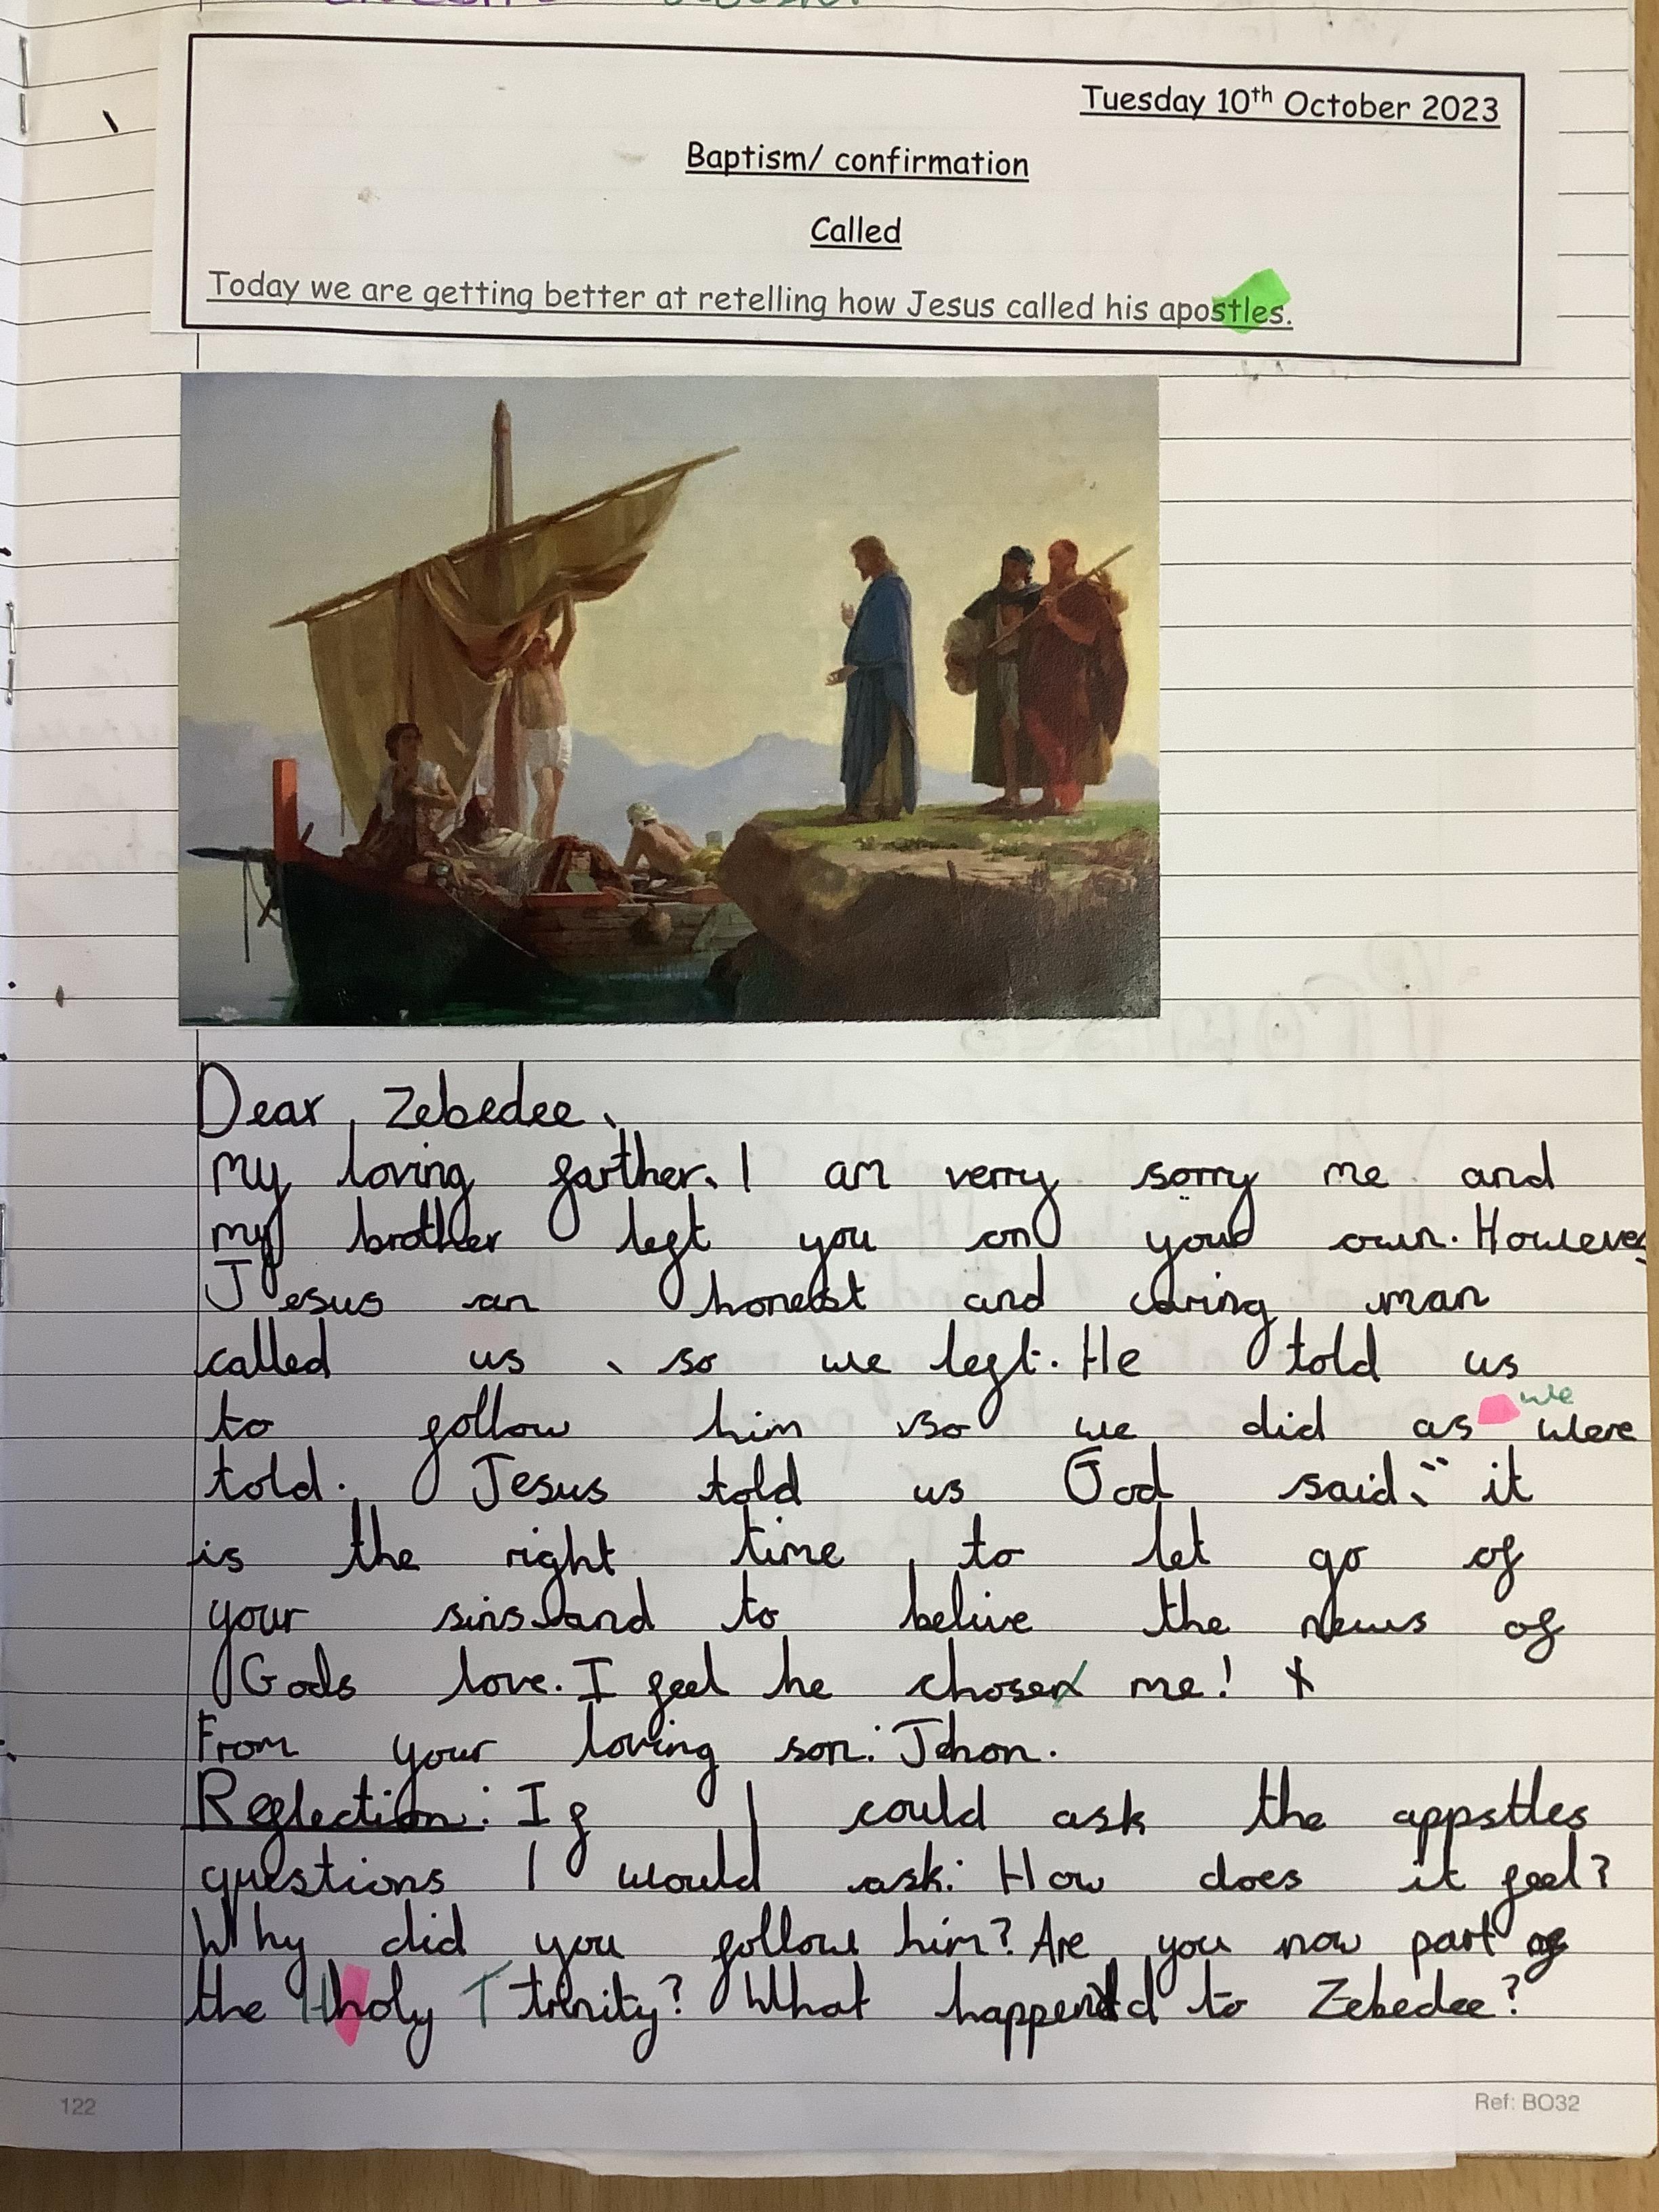 Tuesday 10th October 2023
Baptism/ confirmation
Called
Today we are getting better at retelling how Jesus called his apostles.
Dear, Zebedee,
my loving farther, I am verry sorry me and
my brother left you on your own. However
Jesus an honest and caring man
called us, so we left. He told us
we
to follow him so we did as were
told. Jesus told us God said, "it
is the right time, to let go of
your sins and to belive the news of
Gods love. I feel he chosen me! *
From your loving son: Jehon.
Reflection: If I could ask the appstles
questions I would ask: How does it feel?
Why did you follow him? Are you now part of
the Hholy Ttrinity? What happend to Zebedee?
122
Ref: BO32